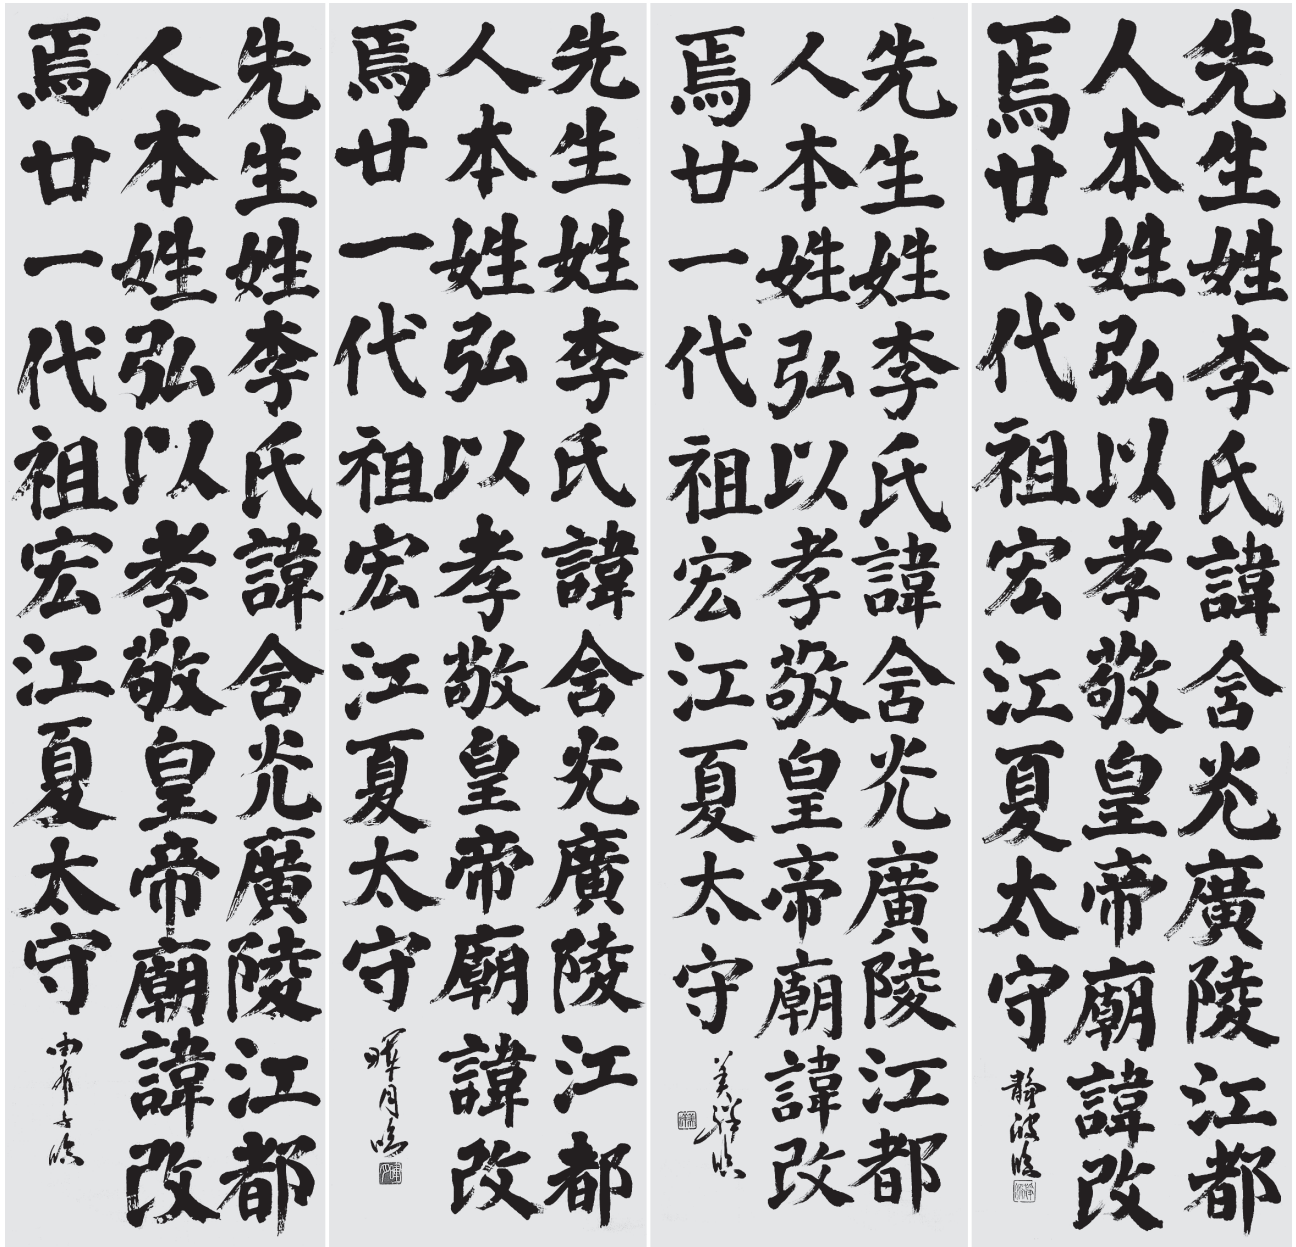 先生姓李氏諱含光廣陵江都
人本姓弘以孝敬皇帝廟諱改
焉廿一代祖宏江夏太守
靜波臨
先生姓李氏諱含光廣陵江都
人本姓弘以孝敬皇帝廟諱改
焉廿一代祖宏江夏太守
先生姓李氏諱含光廣陵江都
人本姓弘以孝敬皇帝廟諱改
焉廿一代祖宏江夏太守
暉月臨
先生姓李氏諱含光廣陵江都
人本姓弘以孝敬皇帝廟諱改
焉廿一代祖宏江夏太守